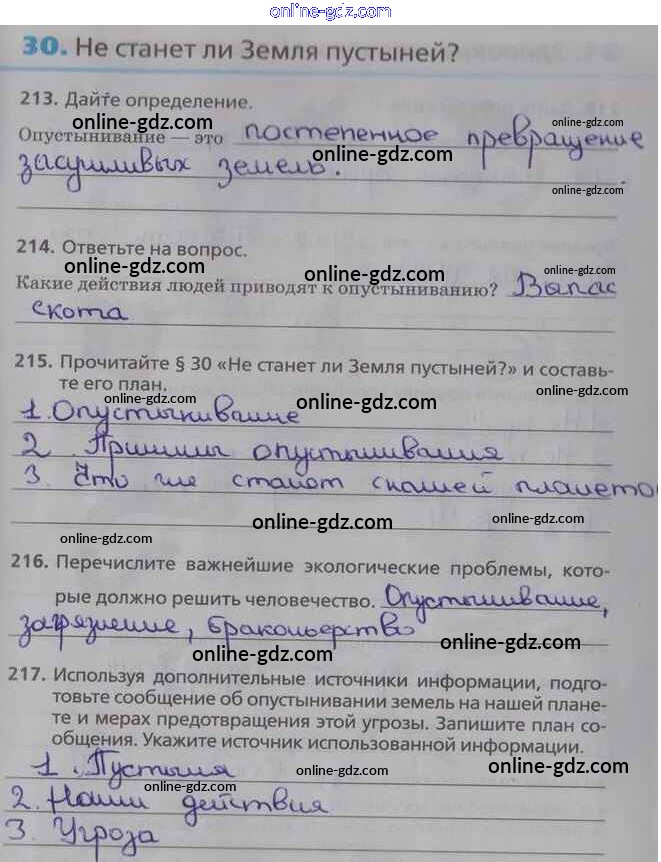 online-gdz.com
30. Не станет ли Земля пустыней?
213. Дайте определение.
online-gdz.com online-gdz.com
Опустынивание — это постепенное превращение
online-gdz.com
засушливых земель.
online-gdz.com online-gdz.com
214. Ответьте на вопрос.
online-gdz.com online-gdz.com online-gdz.com
Какие действия людей приводят к опустыниванию? Выпас
скота
online-gdz.com online-gdz.com
215. Прочитайте § 30 «Не станет ли Земля пустыней?» и составь-
те его план.
online-gdz.com online-gdz.com online-gdz.com
1. Опустынивание
2. Причины опустынивания
3. Что же станет с нашей планетой
online-gdz.com online-gdz.com online-gdz.com
216. Перечислите важнейшие экологические проблемы, кото-
рые должно решить человечество. Опустынивание,
online-gdz.com
загрязнение, браконьерство
online-gdz.com online-gdz.com
217. Используя дополнительные источники информации, подго-
товьте сообщение об опустынивании земель на нашей плане-
те и мерах предотвращения этой угрозы. Запишите план со-
общения. Укажите источник использованной информации.
1. Пустыня
online-gdz.com online-gdz.com
2. Наши действия
online-gdz.com online-gdz.com
3. Угроза
online-gdz.com